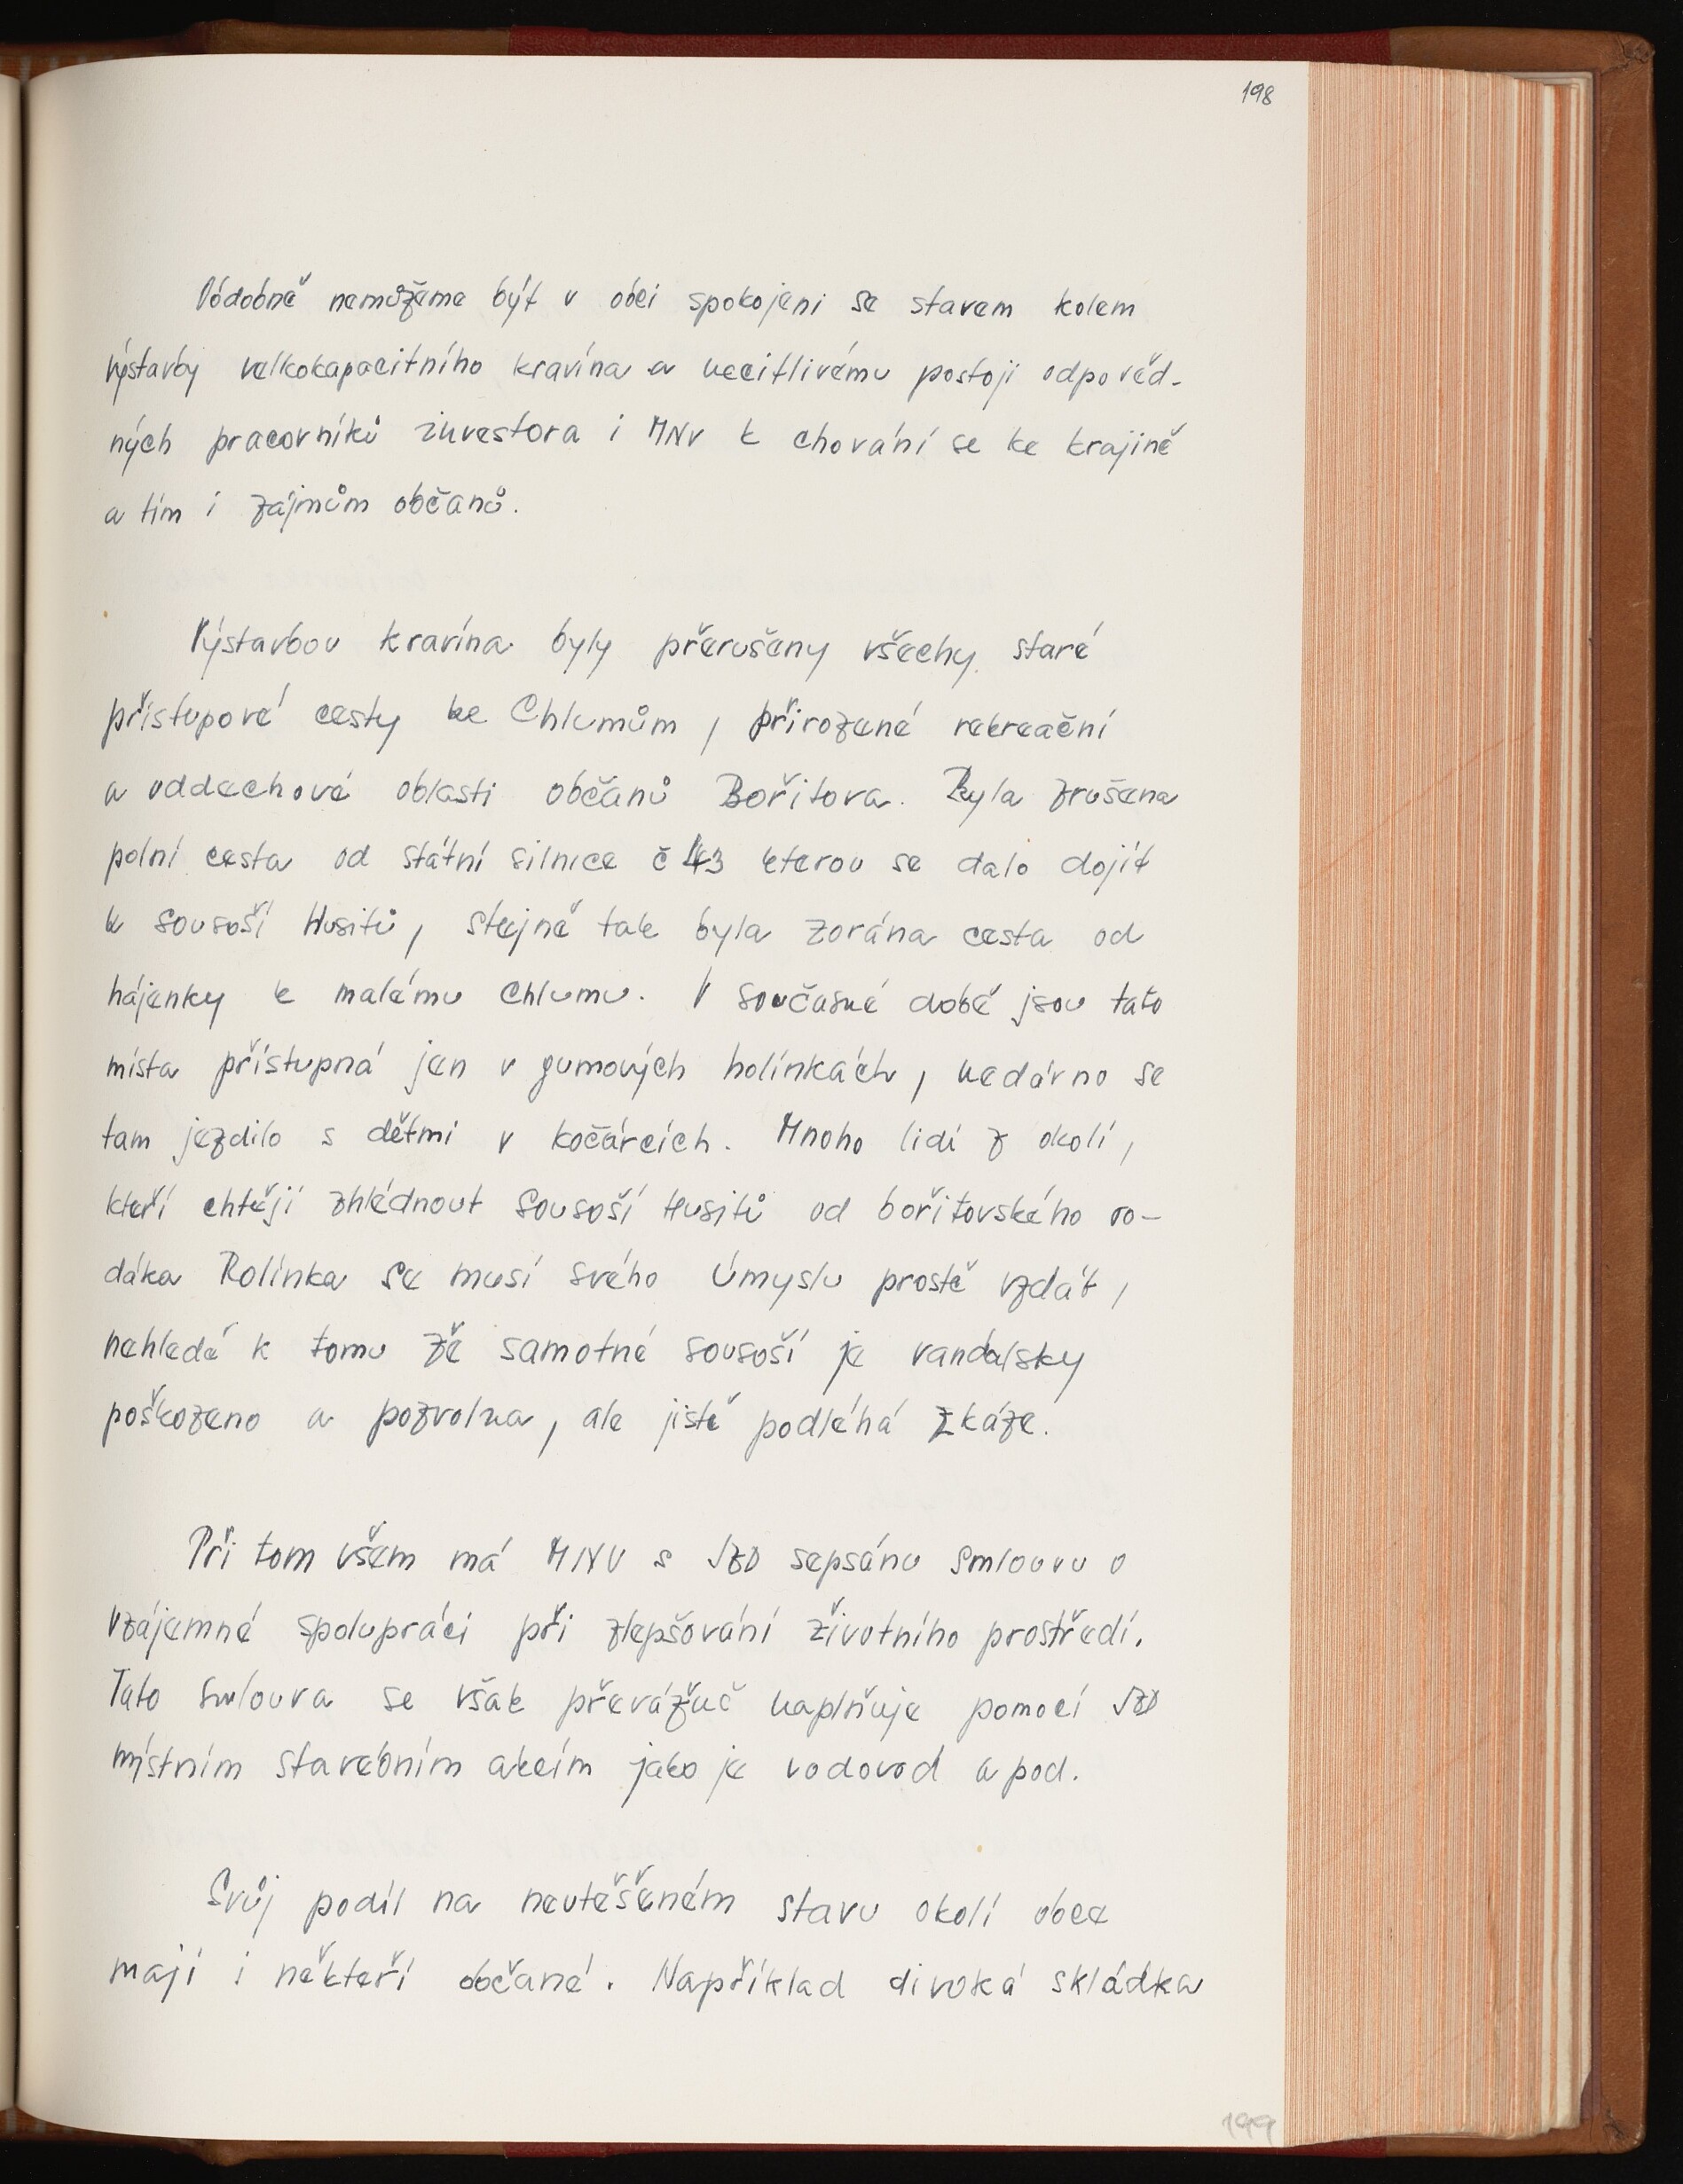 198
Podobně nemůžeme být v obci spokojeni se stavem kolem
výstavby velkokapacitního kravína a necitlivému postoji odpověd-
ných pracovníků investora i MNV k chování se ke krajině
a tím i zájmům občanů.
Výstavbou kravína byly přerušeny všechy staré
přístupové cesty ke Chlumům, přirozené rekreační
a oddechové oblasti občanů Bořitova. Byla zrušena
polní cesta od státní silnice č 43 kterou se dalo dojít
k sousoší Husitů, stejně tak byla zorána cesta od
hájenky k malému Chlumu. V současné době jsou tato
místa přístupná jen v gumových holínkách, nedávno se
tam jezdilo s dětmi v kočárcích. Mnoho lidí z okolí,
kteří chtějí zhlédnout Sousoší Husitů od bořitovského ro-
dáka Rolínka se musí svého úmyslu prostě vzdát,
nehledě k tomu že samotné sousoší je vandalsky
poškozeno a pozvolna, ale jistě podléhá zkáze.
Při tom všem má MNV s JZD sepsánu smlouvu o
vzájemné spolupráci při zlepšování životního prostředí.
Tato smlouva se však převážně naplňuje pomocí JZD
místním stavebním akcím jako je vodovod a pod.
Svůj podíl na neutěšeném stavu okolí obce
mají i někteří občané. Například divoká skládka
199